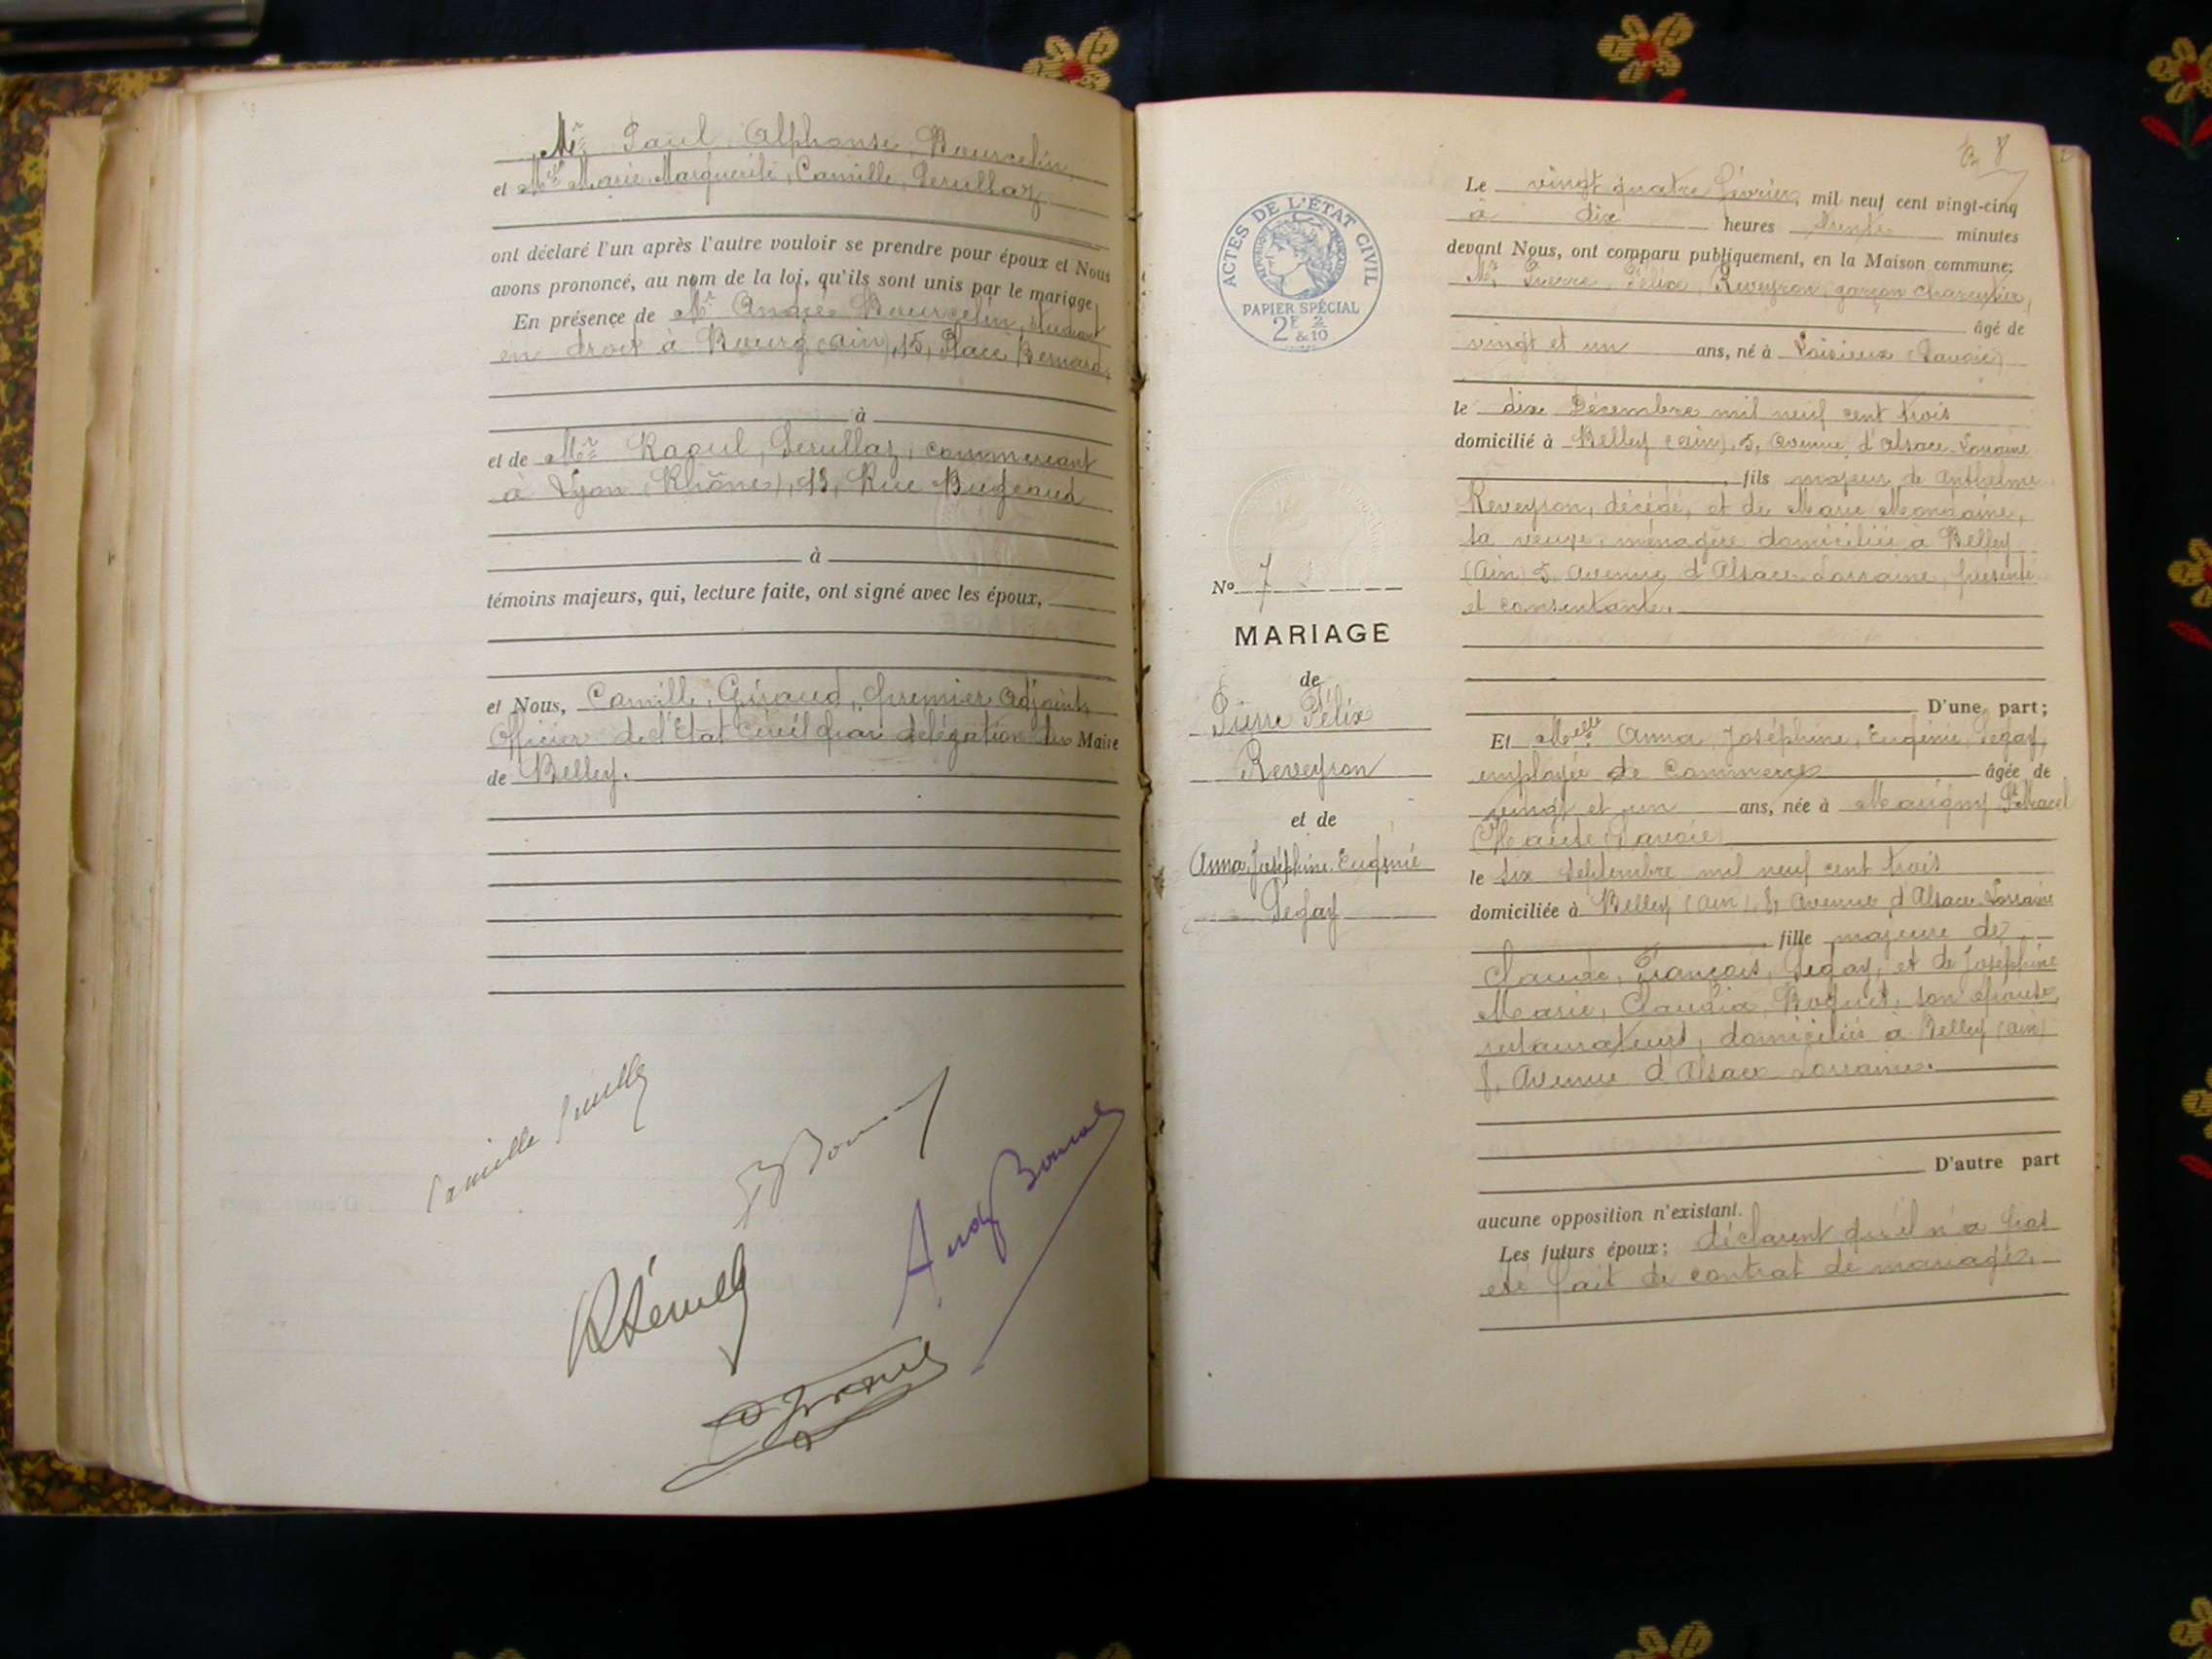 Mr Paul Alphonse, Bourcelin,
et Melle Marie, Marguerite, Camille, Perullaz
ont déclaré l'un après l'autre vouloir se prendre pour époux et Nous
avons prononcé, au nom de la loi, qu'ils sont unis par le mariage
En présence de Mr André Bourcelin, étudiant
en droit à Bourg (Ain), 15, Place Bernard,
à
et de Mr Raoul, Perullaz, commerçant
à Lyon (Rhône), 93, Rue Bugeaud
à
témoins majeurs, qui, lecture faite, ont signé avec les époux,
et Nous, Camille, Giraud, premier adjoint,
Officier de l'Etat Civil par délégation du Maire
de Belley.
Camille
ACTES DE L'ÉTAT CIVIL
PAPIER SPÉCIAL
2F 2/10
No 7
MARIAGE
de
Pierre Félix
Reveyron
et de
Anna, Joséphine, Eugénie
Pegay
8
Le vingt quatre février, mil neuf cent vingt-cinq
à dix heures trente minutes
devant Nous, ont comparu publiquement, en la Maison commune:
Mr Pierre, Félix, Reveyron, garçon charcutier,
âgé de
vingt et un ans, né à Loisieux (Savoie)
le dix Décembre mil neuf cent trois
domicilié à Belley (Ain), 5, Avenue d'Alsace-Lorraine
fils majeur de Anthelme
Reveyron, décédé, et de Marie
sa veuve, ménagère domiciliée à Belley
(Ain) 5, Avenue d'Alsace-Lorraine, présente
et consentante.
D'une part;
Et Melle Anna, Joséphine, Eugénie, Pegay,
employée de Commerce âgée de
vingt et un ans, née à St Marcel
(Haute Savoie)
le six septembre mil neuf cent trois
domiciliée à Belley (Ain), 8, Avenue d'Alsace-Lorraine
fille majeure de
Claude, François, Pegay, et de Joséphine
Marie, Claudia, Boquet, son épouse,
restaurateurs, domiciliés à Belley (Ain)
8, Avenue d'Alsace Lorraine.
D'autre part
aucune opposition n'existant.
Les futurs époux; déclarent qu'il n'a pas
été fait de contrat de mariage.